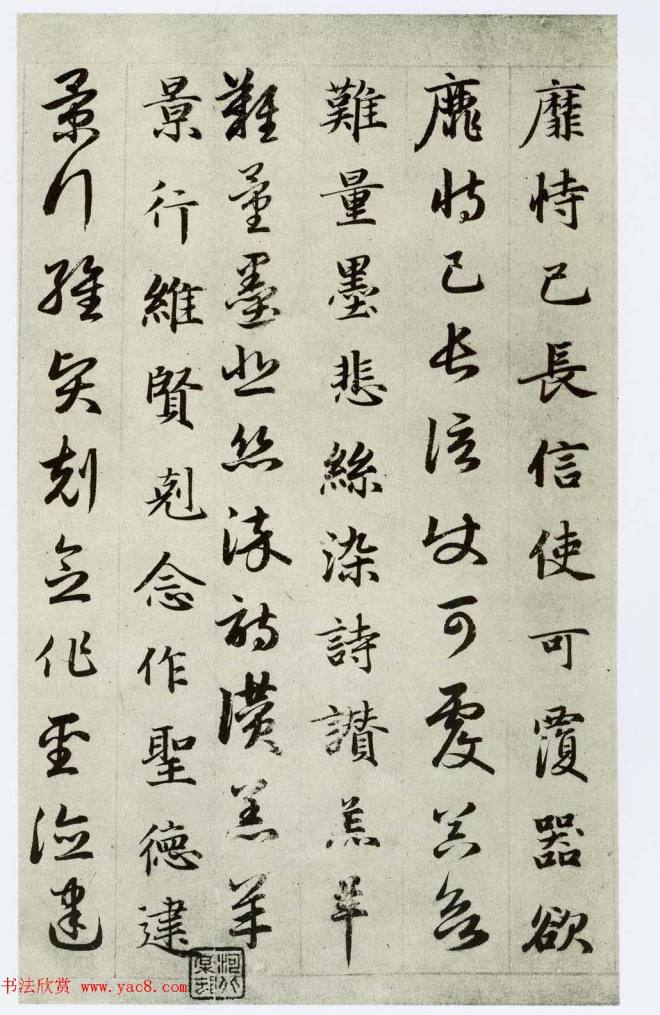 靡恃己長信使可覆器欲
靡恃己長信使可覆器欲
難量墨悲絲染詩讚羔羊
難量墨悲絲染詩讚羔羊
景行維賢剋念作聖德建
景行維賢剋念作聖德建
书法欣赏 www.yac8.com